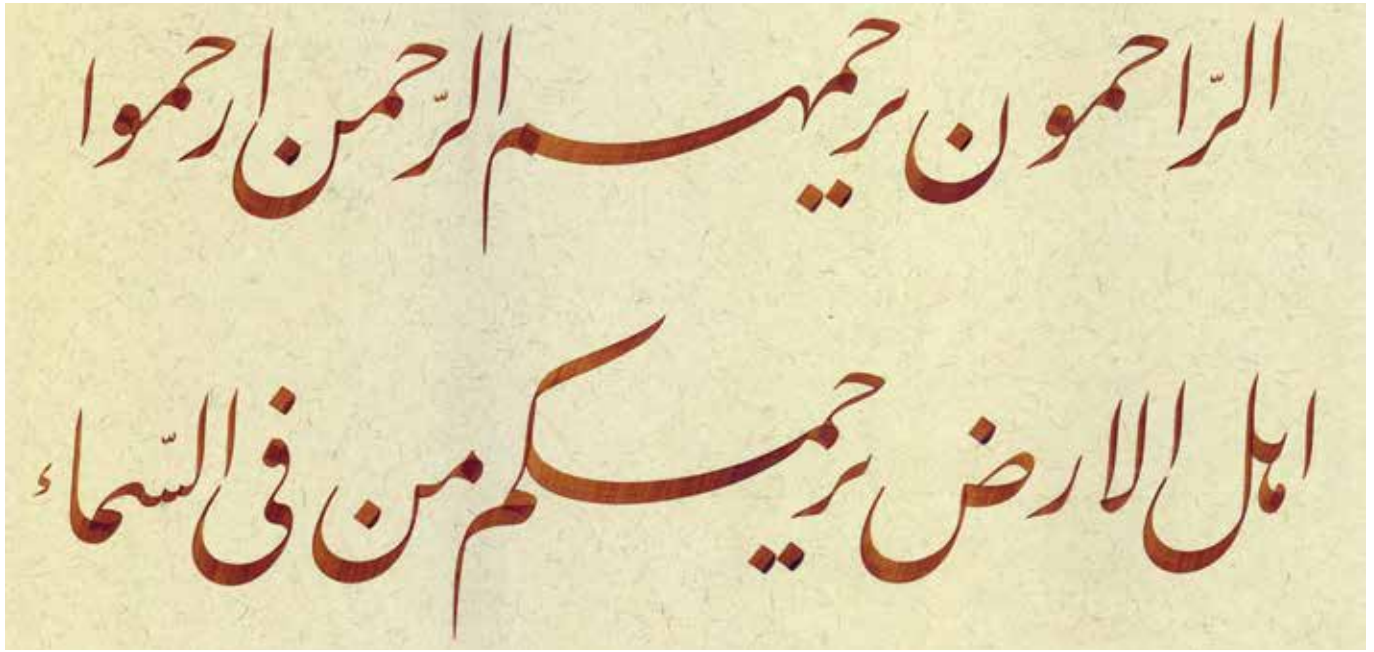 الرّاحمون يرحمهم الرّحمن ارحموا
اهل الارض يرحمكم من فى السّماء